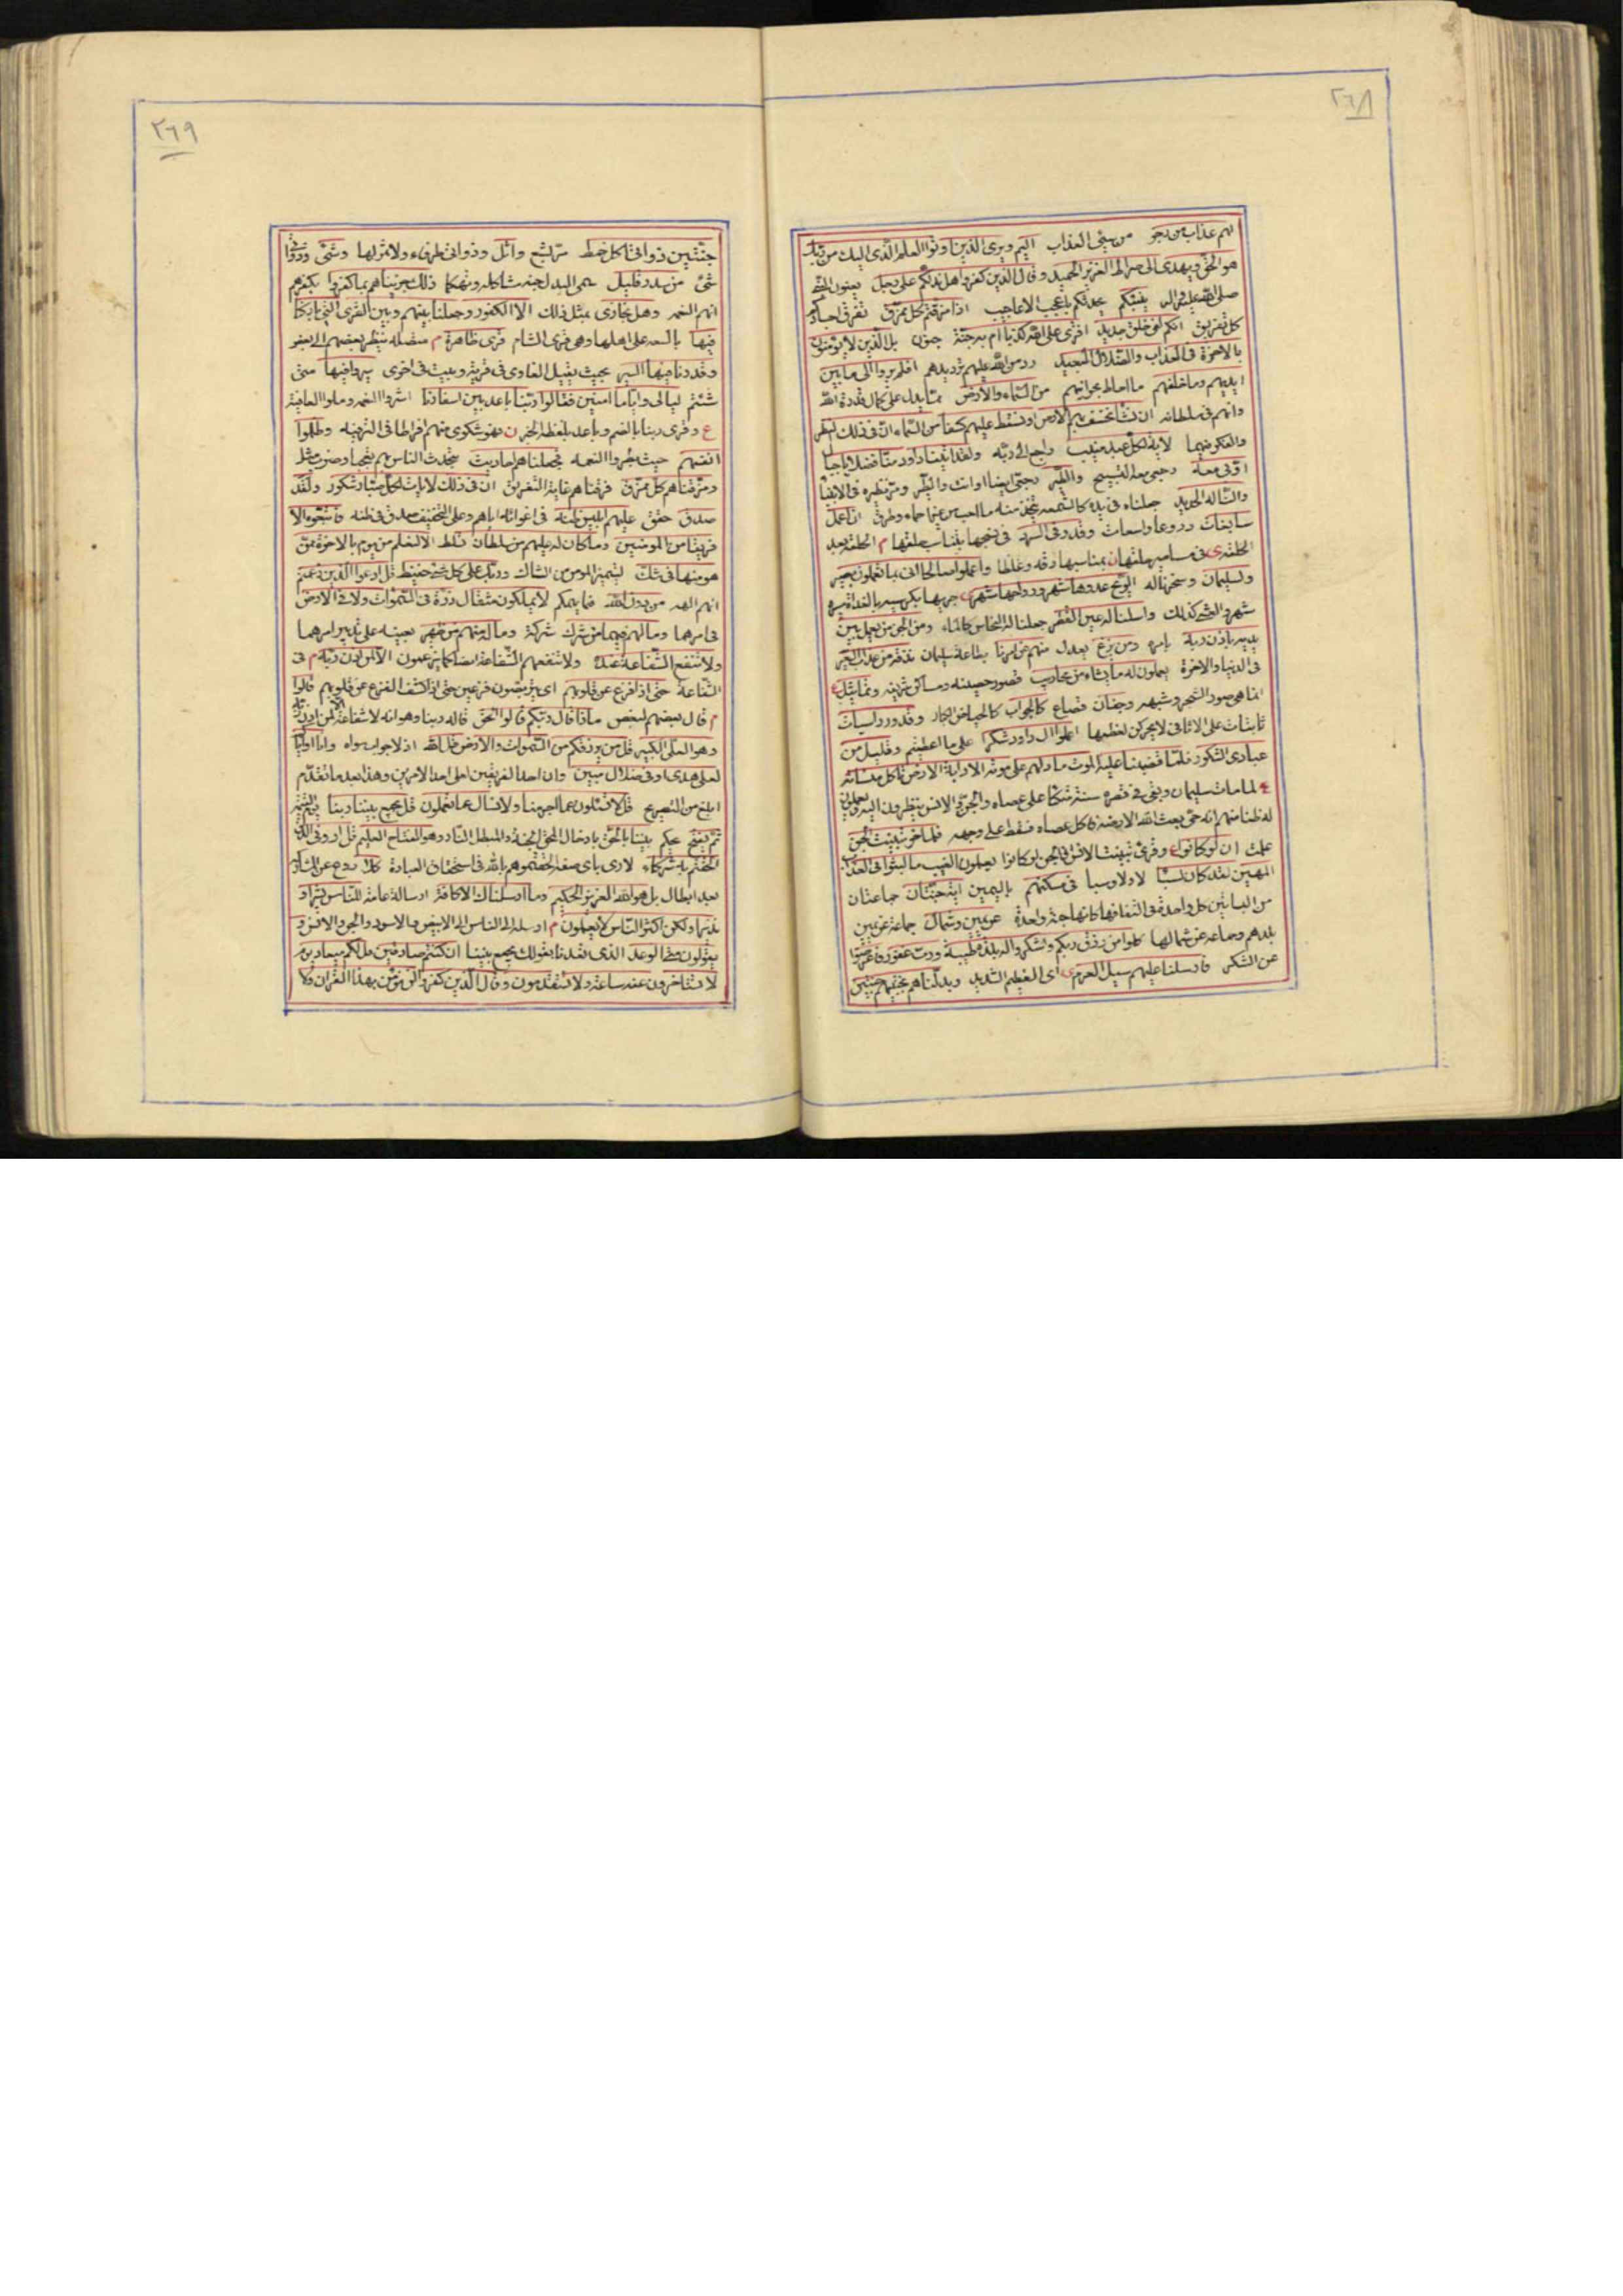 ٢٦٨
لهم عذاب من رجز من سيئ العذاب اليم ويرى الذين اوتوا العلم الذى اليك من ربك
هو الحق ويهدى الى صراط العزيز الحميد وقال الذين كفروا هل ندلكم على رجل يعنون النبى
صلى الله عليه واله ينبئكم يحدثكم باعجب الاعاجيب اذا مزقتم كل ممزق تفرق اجسادكم
كل تفريق انكم لفى خلق جديد افترى على الله كذبا ام به جنة جنون بل الذين لا يؤمنون
بالاخرة فى العذاب والضلال البعيد رد من الله عليهم ترديدهم افلم يروا الى ما بين
ايديهم وما خلفهم ما احاط بجوانبهم من السماء والارض مما يدل على كمال قدرة الله
وانهم فى سلطانه ان نشأ نخسف بهم الارض او نسقط عليهم كسفا من السماء ان فى ذلك لنظر
والفكر فيهما لاية لكل عبد منيب راجع الى ربه ولقد اتينا داود منا فضلا يا جبال
اوبى معه رجعى معه التسبيح والطير رجعى ايضا او انت والطير ومر نظيره فى الانبياء
والنا له الحديد جعلناه فى يده كالشمعه يتخذ منه ما احب من غير احماء وطرق ان اعمل
سابغات دروعا واسعات وقدر فى السرد فى نسجها بتناسب حلقها م الحلقة بعد
الحلقة ى فى مسامير حلقها ن بمناسبها دقه وغلظا واعملوا صالحا انى بما تعملون بصير
ولسليمان وسخرنا له الريح غدوها شهر ورواحها شهر ى جريها بكرسيه بالغداة مسيرة
شهر والعشى كذلك واسلنا له عين القطر جعلنا له النحاس كالماء ومن الجن من يعمل بين
يديه باذن ربه بامره ومن يزغ يعدل منهم عن امرنا بطاعة سليمان نذقه من عذاب السعير
فى الدنيا والاخرة يعملون له ما يشاء من محاريب قصور حصينه ومساكن شريفه وتماثيل ع
انما هى صور الشجر وشبهه وجفان قصاع كالجواب كالحياض الكبار وقدور راسيات
ثابتات على الاثافى لا يحركن لعظمها اعملوا ال داود شكرا على ما اعطيتم وقليل من
عبادى الشكور فلما قضينا عليه الموت ما دلهم على موته الا دابة الارض تاكل منساته
ع لما مات سليمان وبقى فى قصره سنة متكئا على عصاه والجن والانس ينظرون اليه ويعملون
له ظنا منهم انه حى بعث الله الارضة فاكل عصاه فسقط على وجهه فلما خر تبينت الجن
علمت ان لو كانوا ع وقرئ تبينت الانس ان الجن لو كانوا يعلمون الغيب ما لبثوا فى العذاب
المهين لقد كان لسبأ لاولاد سبا فى مسكنهم باليمين اية جنتان جماعتان
من البساتين كل واحدة فى التفافها كانها جنة واحدة عن يمين وشمال جماعة عن يمين
بلدهم وجماعه عن شمالها كلوا من رزق ربكم واشكروا له بلدة طيبة ورب غفور فاعرضوا
عن الشكر فارسلنا عليهم سيل العرم ى اى العظيم الشديد وبدلناهم بجنتيهم جنتين
٢٦٩
جنتين ذواتى اكل خمط مر بشع واثل وذواتى طرفاء ولا ثمر لها وشئ وذواتى
شئ من سدر قليل سمى البدل جنة مشاكله وتهكما ذلك جزيناهم بما كفروا بكفرهم
انهم النعم وهل نجازى بمثل ذلك الا الكفور وجعلنا بينهم وبين القرى التى باركنا
فيها بالسعه على اهلها وهى قرى الشام قرى ظاهرة م متصله ينظر بعضهم الى بعض
وقدرنا فيها السير بحيث يقيل الغادى فى قرية ويبيت فى اخرى سيروا فيها متى
شئتم ليالى واياما امنين فقالوا ربنا باعد بين اسفارنا اشروا النعم وملوا العافية
ع وقرئ ربنا بالضم وباعد بلفظ الخبر ن فهو شكوى منهم افراطا فى الترفيه وظلموا
انفسهم حيث بطروا النعمه فجعلناهم احاديث يتحدث الناس بهم تعجبا وضرب مثل
ومزقناهم كل ممزق فرقناهم غاية التفريق ان فى ذلك لايات لكل صبار شكور ولقد
صدق حقق عليهم ابليس ظنه فى اغوائه اياهم وعلى التخفيف صدق فى ظنه فاتبعوه الا
فريقا من المؤمنين وما كان له عليهم من سلطان تسلط الا لنعلم من يؤمن بالاخرة ممن
هو منها فى شك ليتميز المؤمن من الشاك وربك على كل شئ حفيظ قل ادعوا الذين زعمتم
انهم الهه من دون الله فيما يهمكم لا يملكون مثقال ذرة فى السموات ولا فى الارض
فى امرهما وما لهم فيهما من شرك شركة وما له منهم من ظهير يعينه على تدبير امرهما
ولا تنفع الشفاعة عنده ولا تنفعهم الشفاعة ايضا كما يزعمون الا لمن اذن له م فى
الشفاعة حتى اذا فزع عن قلوبهم اى يتربصون فزعين حتى اذا كشف الفزع عن قلوبهم قالوا
م قال بعضهم لبعض ماذا قال ربكم قالوا الحق قاله ربنا وهو انه لا شفاعة الا لمن اذن له
وهو العلى الكبير قل من يرزقكم من السموات والارض قل الله اذ لا جواب سواه وانا او اياكم
لعلى هدى او فى ضلال مبين وان احد الفريقين لعلى احد الامرين وهذا بعد ما تقدم
ابلغ من التصريح قل لا تسئلون عما اجرمنا ولا نسال عما تعملون قل يجمع بيننا ربنا يوم القيمة
ثم يفتح يحكم بيننا بالحق بادخال المحق الجنة والمبطل النار وهو الفتاح العليم قل ارونى الذين
الحقتم به شركاء لارى باى صفة الحقتموهم بالله فى استحقاق العبادة كلا ردع عن المشاركة
بعد ابطال بل هو الله العزيز الحكيم وما ارسلناك الا كافة ارسالة عامة للناس بشيرا و
نذيرا ولكن اكثر الناس لا يعلمون م ارسله الى الناس الى الابيض والاسود والجن والانس و
يقولون متى الوعد الذى تعدنا بقولك يجمع بيننا ان كنتم صادقين قل لكم ميعاد يوم
لا تستاخرون عنه ساعة ولا تستقدمون وقال الذين كفروا لن نؤمن بهذا القران ولا